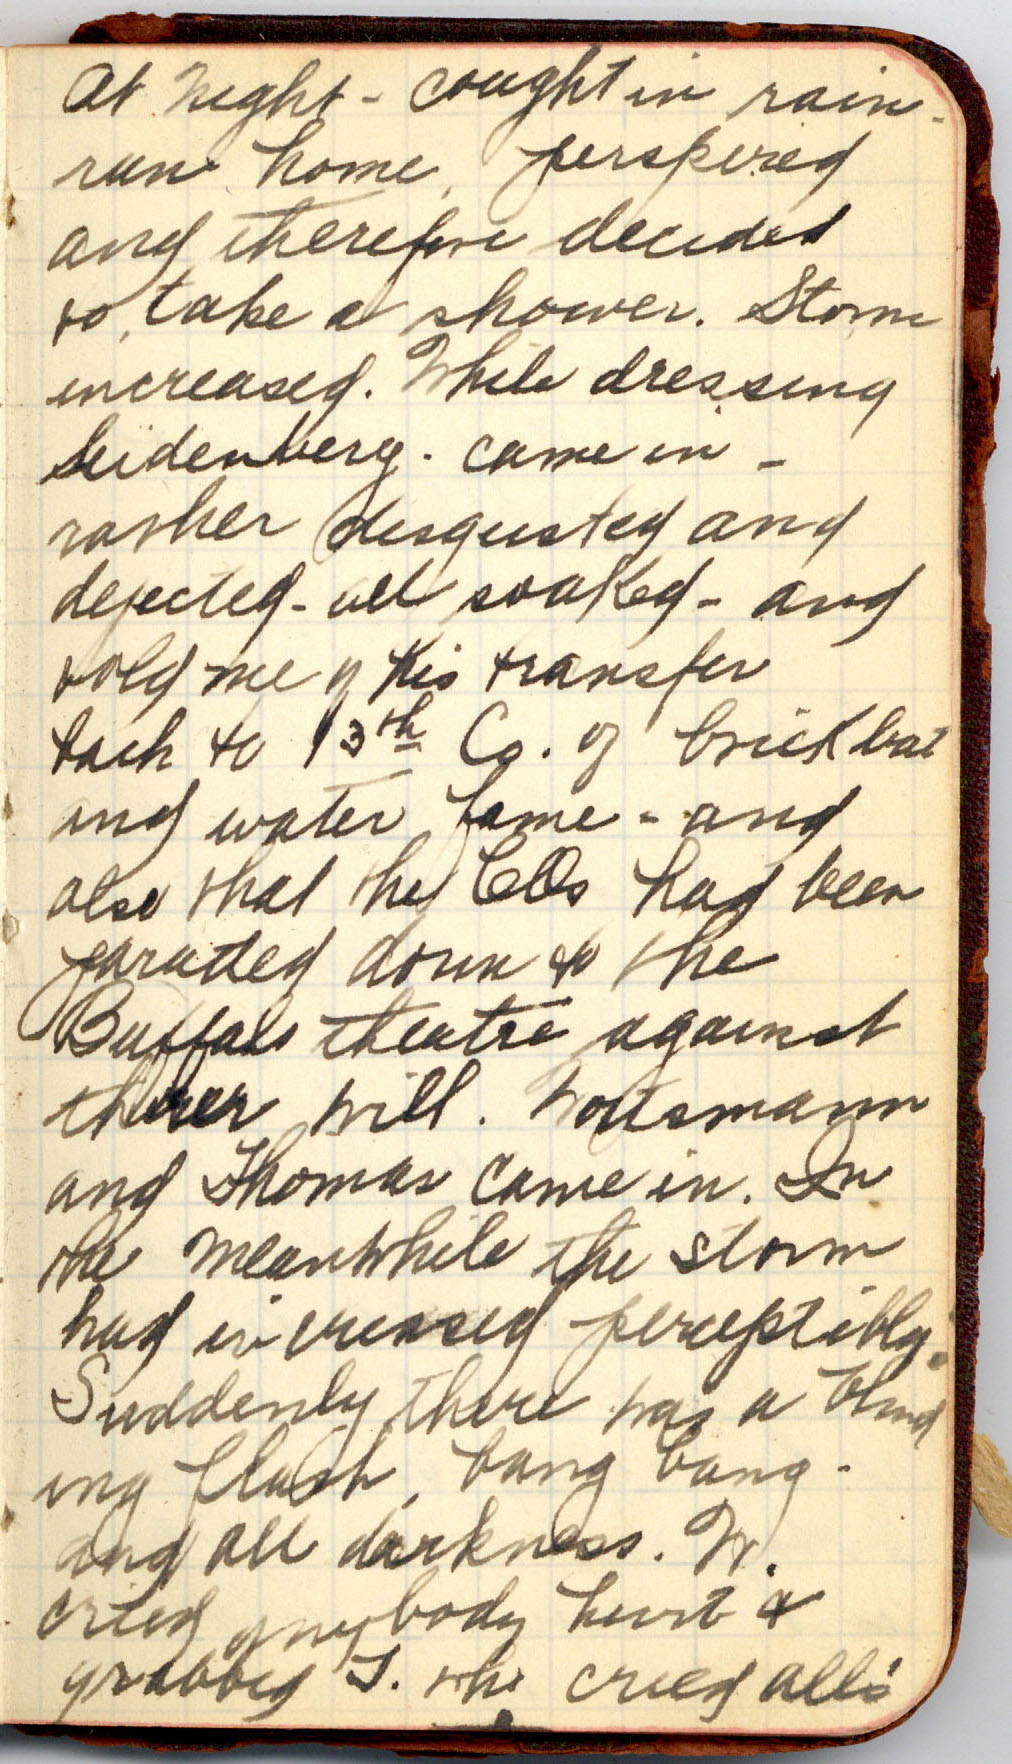 At night - cought in rain -
run home, perspired
and therefore decided
to take a shower. Storm
increased. While dressing
Seidenberg. came in -
rather disgusted and
dejected - all soaked - and
told me of his transfer
back to 13th Co. of brickbat
and water fame - and
also that they COs had been
paraded down to the
Buffalo theatre against
their will.
and Thomas came in. In
the meanwhile the storm
had increased perceptibly.
Suddenly there was a blind
ing flash, bang bang -
and all darkness. W.
cried anybody hurt &
grabbed T. who cried all's